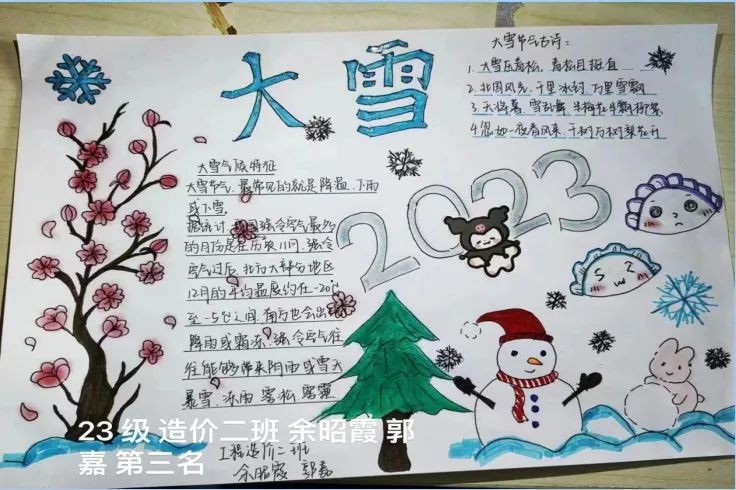 大雪
大雪节气古诗:
1. 大雪压青松,青松且挺直
2. 北国风光,千里冰封,万里雪飘
3. 天将暮,雪乱舞,半梅花半飘柳絮
4. 忽如一夜春风来,千树万树梨花开
大雪气候特征
大雪节气,最常见的就是降温、下雨
或下雪。
据统计,我国强冷空气最多
的月份是在历史11月,强冷
空气过后,北方大部分地区
12月的平均温度约在-20℃
至-5℃之间,南方也会出现
降雨或霜冻,强冷空气往
往能够带来阴雨或雪天
暴雪、冻雨、雾凇、雾霾
2023
工程造价二班
余昭霞 郭嘉
23 级 造价二班 余昭霞 郭
嘉 第三名